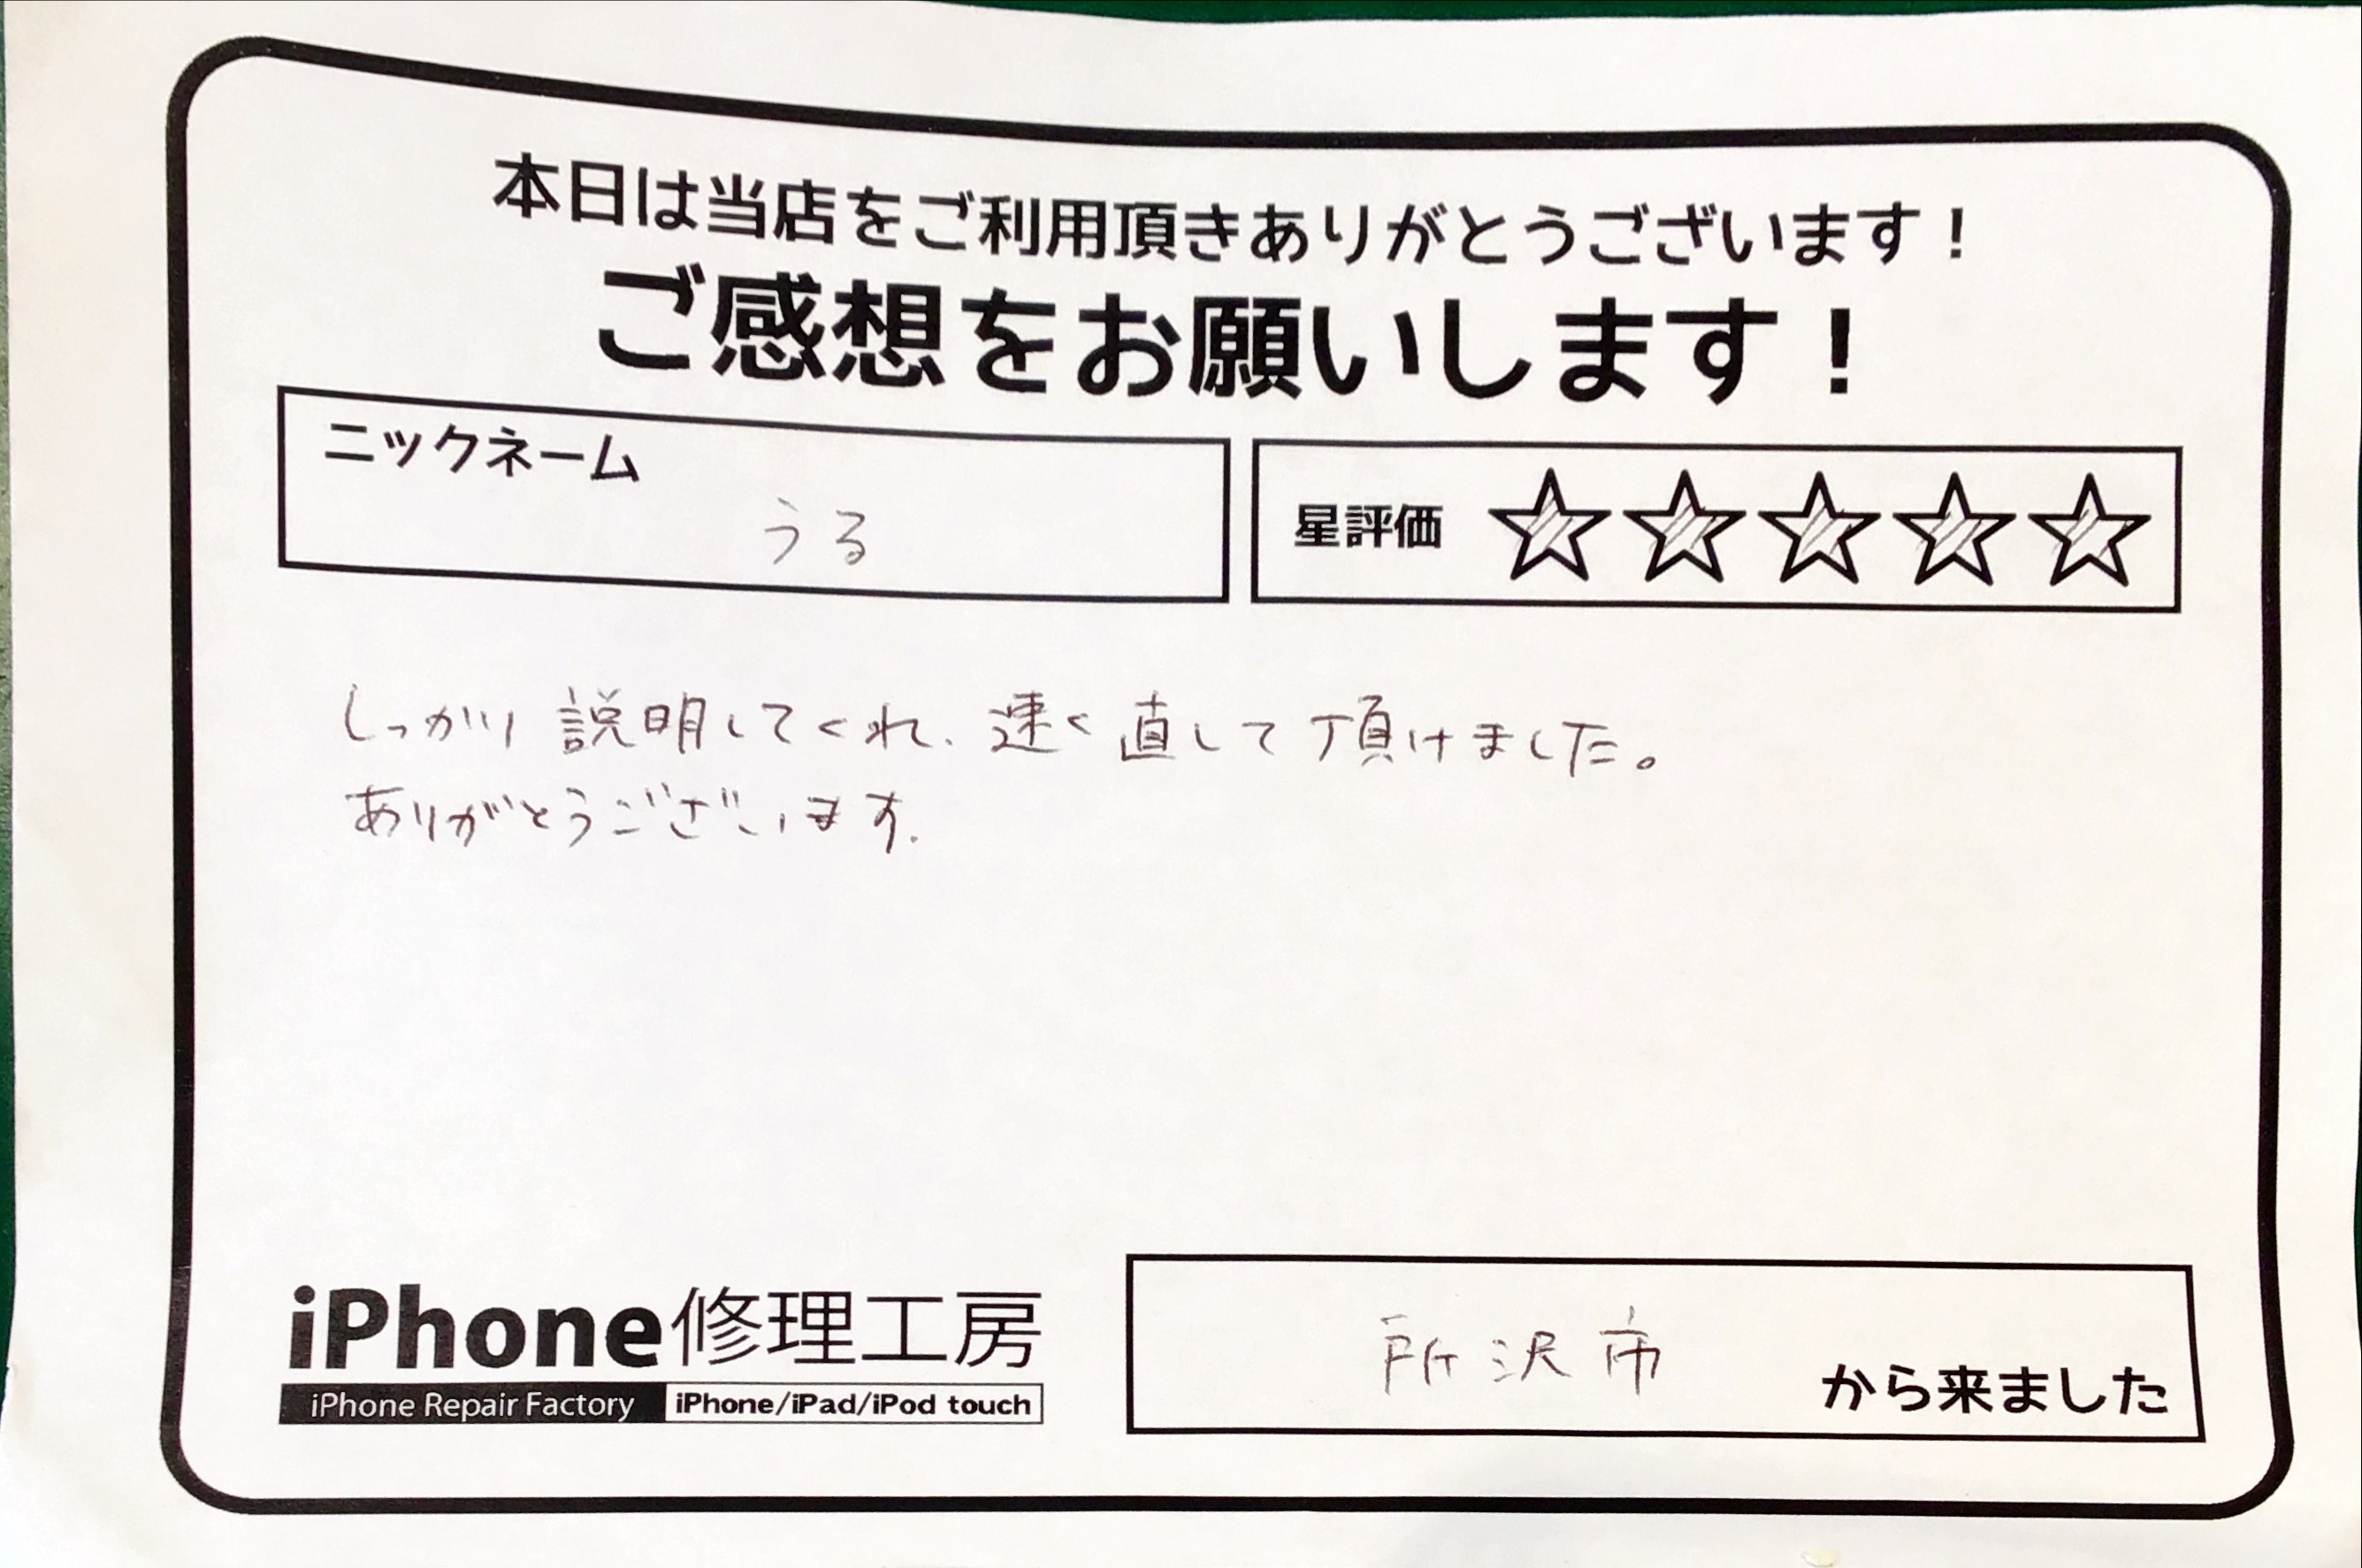 本日は当店をご利用頂きありがとうございます！
ご感想をお願いします！
ニックネーム
うる
星評価 ☆☆☆☆☆
しっかり説明してくれ、速く直して頂けました。
ありがとうございます.
iPhone修理工房
iPhone Repair Factory iPhone/iPad/iPod touch
所沢市 から来ました